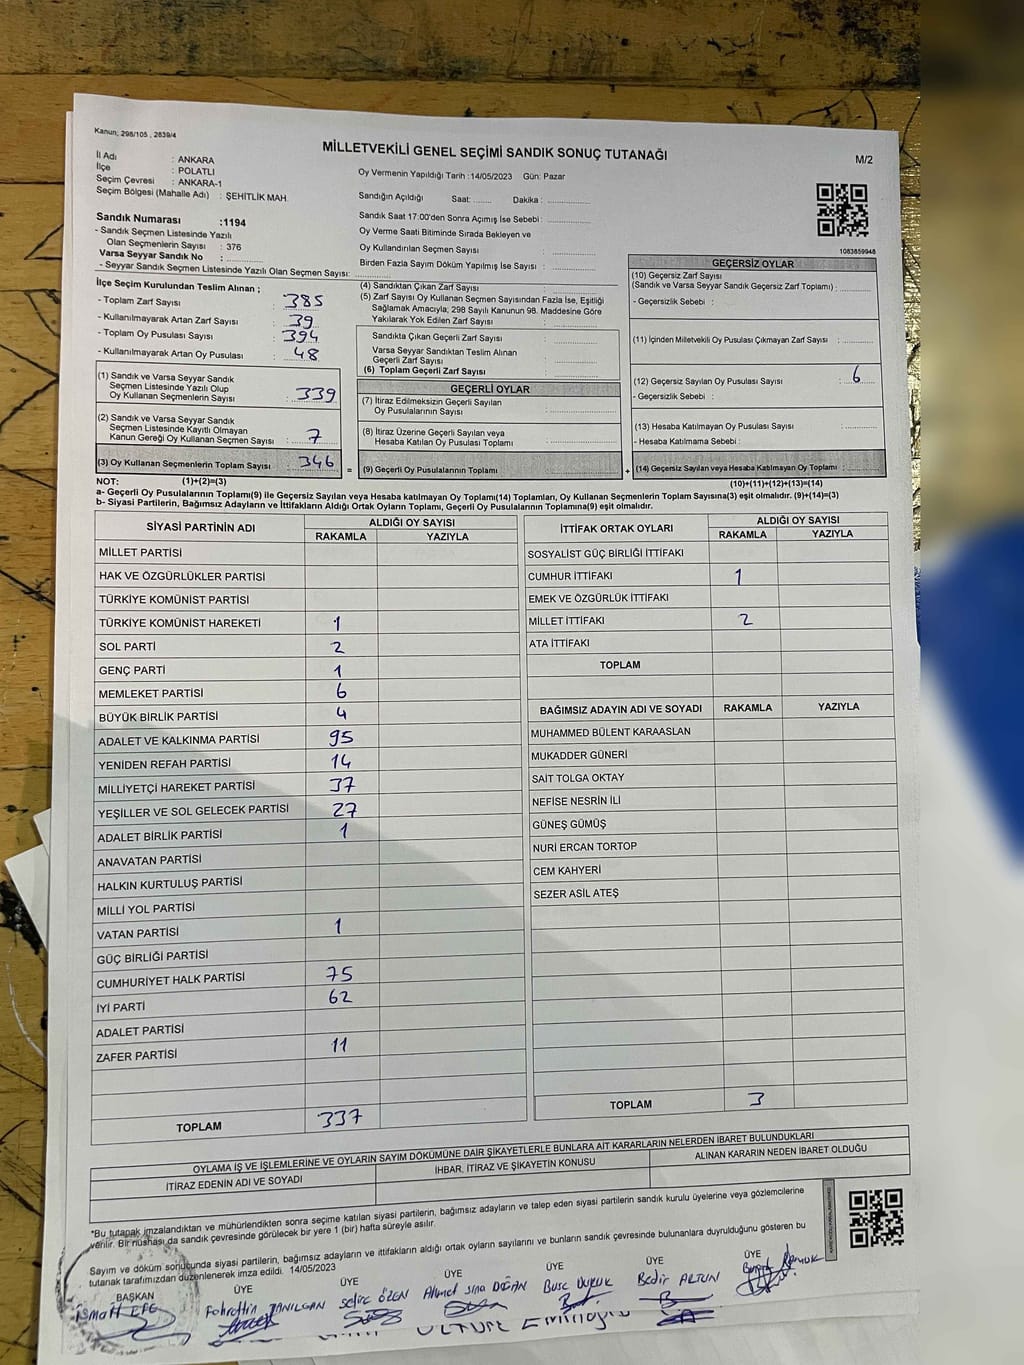 Kanun; 298/105 , 2839/4
MİLLETVEKİLİ GENEL SEÇİMİ SANDIK SONUÇ TUTANAĞI
M/2
İl Adı : ANKARA
İlçe : POLATLI
Seçim Çevresi : ANKARA-1
Seçim Bölgesi (Mahalle Adı) : ŞEHİTLİK MAH.
Oy Vermenin Yapıldığı Tarih :14/05/2023 Gün: Pazar
Sandığın Açıldığı Saat: Dakika :
Sandık Saat 17:00'den Sonra Açımış İse Sebebi :
Oy Verme Saati Bitiminde Sırada Bekleyen ve
Oy Kullandırılan Seçmen Sayısı :
Birden Fazla Sayım Döküm Yapılmış İse Sayısı :
1083859948
Sandık Numarası :1194
- Sandık Seçmen Listesinde Yazılı
Olan Seçmenlerin Sayısı : 376
Varsa Seyyar Sandık No :
- Seyyar Sandık Seçmen Listesinde Yazılı Olan Seçmen Sayısı:
İlçe Seçim Kurulundan Teslim Alınan ;
- Toplam Zarf Sayısı : 385
- Kullanılmayarak Artan Zarf Sayısı : 39
- Toplam Oy Pusulası Sayısı : 394
- Kullanılmayarak Artan Oy Pusulası : 48
(1) Sandık ve Varsa Seyyar Sandık
Seçmen Listesinde Yazılı Olup
Oy Kullanan Seçmenlerin Sayısı : 339
(2) Sandık ve Varsa Seyyar Sandık
Seçmen Listesinde Kayıtlı Olmayan
Kanun Gereği Oy Kullanan Seçmen Sayısı : 7
(3) Oy Kullanan Seçmenlerin Toplam Sayısı : 346
(4) Sandıktan Çıkan Zarf Sayısı :
(5) Zarf Sayısı Oy Kullanan Seçmen Sayısından Fazla İse, Eşitliği
Sağlamak Amacıyla; 298 Sayılı Kanunun 98. Maddesine Göre
Yakılarak Yok Edilen Zarf Sayısı :
Sandıkta Çıkan Geçerli Zarf Sayısı :
Varsa Seyyar Sandıktan Teslim Alınan
Geçerli Zarf Sayısı :
(6) Toplam Geçerli Zarf Sayısı :
GEÇERLİ OYLAR
(7) İtiraz Edilmeksizin Geçerli Sayılan
Oy Pusulalarının Sayısı :
(8) İtiraz Üzerine Geçerli Sayılan veya
Hesaba Katılan Oy Pusulası Toplamı :
= (9) Geçerli Oy Pusulalarının Toplamı :
GEÇERSİZ OYLAR
(10) Geçersiz Zarf Sayısı
(Sandık ve Varsa Seyyar Sandık Geçersiz Zarf Toplamı) :
- Geçersizlik Sebebi :
(11) İçinden Milletvekili Oy Pusulası Çıkmayan Zarf Sayısı :
(12) Geçersiz Sayılan Oy Pusulası Sayısı : 6
- Geçersizlik Sebebi :
(13) Hesaba Katılmayan Oy Pusulası Sayısı :
- Hesaba Katılmama Sebebi :
+ (14) Geçersiz Sayılan veya Hesaba Katılmayan Oy Toplamı :
NOT: (1)+(2)=(3) (10)+(11)+(12)+(13)=(14)
a- Geçerli Oy Pusulalarının Toplamı(9) ile Geçersiz Sayılan veya Hesaba katılmayan Oy Toplamı(14) Toplamları, Oy Kullanan Seçmenlerin Toplam Sayısına(3) eşit olmalıdır. (9)+(14)=(3)
b- Siyasi Partilerin, Bağımsız Adayların ve İttifakların Aldığı Ortak Oyların Toplamı, Geçerli Oy Pusulalarının Toplamına(9) eşit olmalıdır.
SİYASİ PARTİNİN ADI ALDIĞI OY SAYISI
RAKAMLA YAZIYLA
MİLLET PARTİSİ
HAK VE ÖZGÜRLÜKLER PARTİSİ
TÜRKİYE KOMÜNİST PARTİSİ
TÜRKİYE KOMÜNİST HAREKETİ 1
SOL PARTİ 2
GENÇ PARTİ 1
MEMLEKET PARTİSİ 6
BÜYÜK BİRLİK PARTİSİ 4
ADALET VE KALKINMA PARTİSİ 95
YENİDEN REFAH PARTİSİ 14
MİLLİYETÇİ HAREKET PARTİSİ 37
YEŞİLLER VE SOL GELECEK PARTİSİ 27
ADALET BİRLİK PARTİSİ 1
ANAVATAN PARTİSİ
HALKIN KURTULUŞ PARTİSİ
MİLLİ YOL PARTİSİ
VATAN PARTİSİ 1
GÜÇ BİRLİĞİ PARTİSİ
CUMHURİYET HALK PARTİSİ 75
İYİ PARTİ 62
ADALET PARTİSİ
ZAFER PARTİSİ 11
TOPLAM 337
İTTİFAK ORTAK OYLARI ALDIĞI OY SAYISI
RAKAMLA YAZIYLA
SOSYALİST GÜÇ BİRLİĞİ İTTİFAKI
CUMHUR İTTİFAKI 1
EMEK VE ÖZGÜRLÜK İTTİFAKI
MİLLET İTTİFAKI 2
ATA İTTİFAKI
TOPLAM
BAĞIMSIZ ADAYIN ADI VE SOYADI RAKAMLA YAZIYLA
MUHAMMED BÜLENT KARAASLAN
MUKADDER GÜNERİ
SAİT TOLGA OKTAY
NEFİSE NESRİN İLİ
GÜNEŞ GÜMÜŞ
NURİ ERCAN TORTOP
CEM KAHYERİ
SEZER ASİL ATEŞ
TOPLAM 3
OYLAMA İŞ VE İŞLEMLERİNE VE OYLARIN SAYIM DÖKÜMÜNE DAİR ŞİKAYETLERLE BUNLARA AİT KARARLARIN NELERDEN İBARET BULUNDUKLARI
İTİRAZ EDENİN ADI VE SOYADI İHBAR, İTİRAZ VE ŞİKAYETİN KONUSU ALINAN KARARIN NEDEN İBARET OLDUĞU
*Bu tutanak imzalandıktan ve mühürlendikten sonra seçime katılan siyasi partilerin, bağımsız adayların ve talep eden siyasi partilerin sandık kurulu üyelerine veya gözlemcilerine
verilir. Bir nüshası da sandık çevresinde görülecek bir yere 1 (bir) hafta süreyle asılır.
Sayım ve döküm sonucunda siyasi partilerin, bağımsız adayların ve ittifakların aldığı ortak oyların sayılarını ve bunların sandık çevresinde bulunanlara duyrulduğunu gösteren bu
tutanak tarafımızdan düzenlenerek imza edildi. 14/05/2023
BAŞKAN ÜYE ÜYE ÜYE ÜYE ÜYE ÜYE
İsmail EFE Fahrettin Ahmet Sina DOĞAN Buse Bedir ARTUN